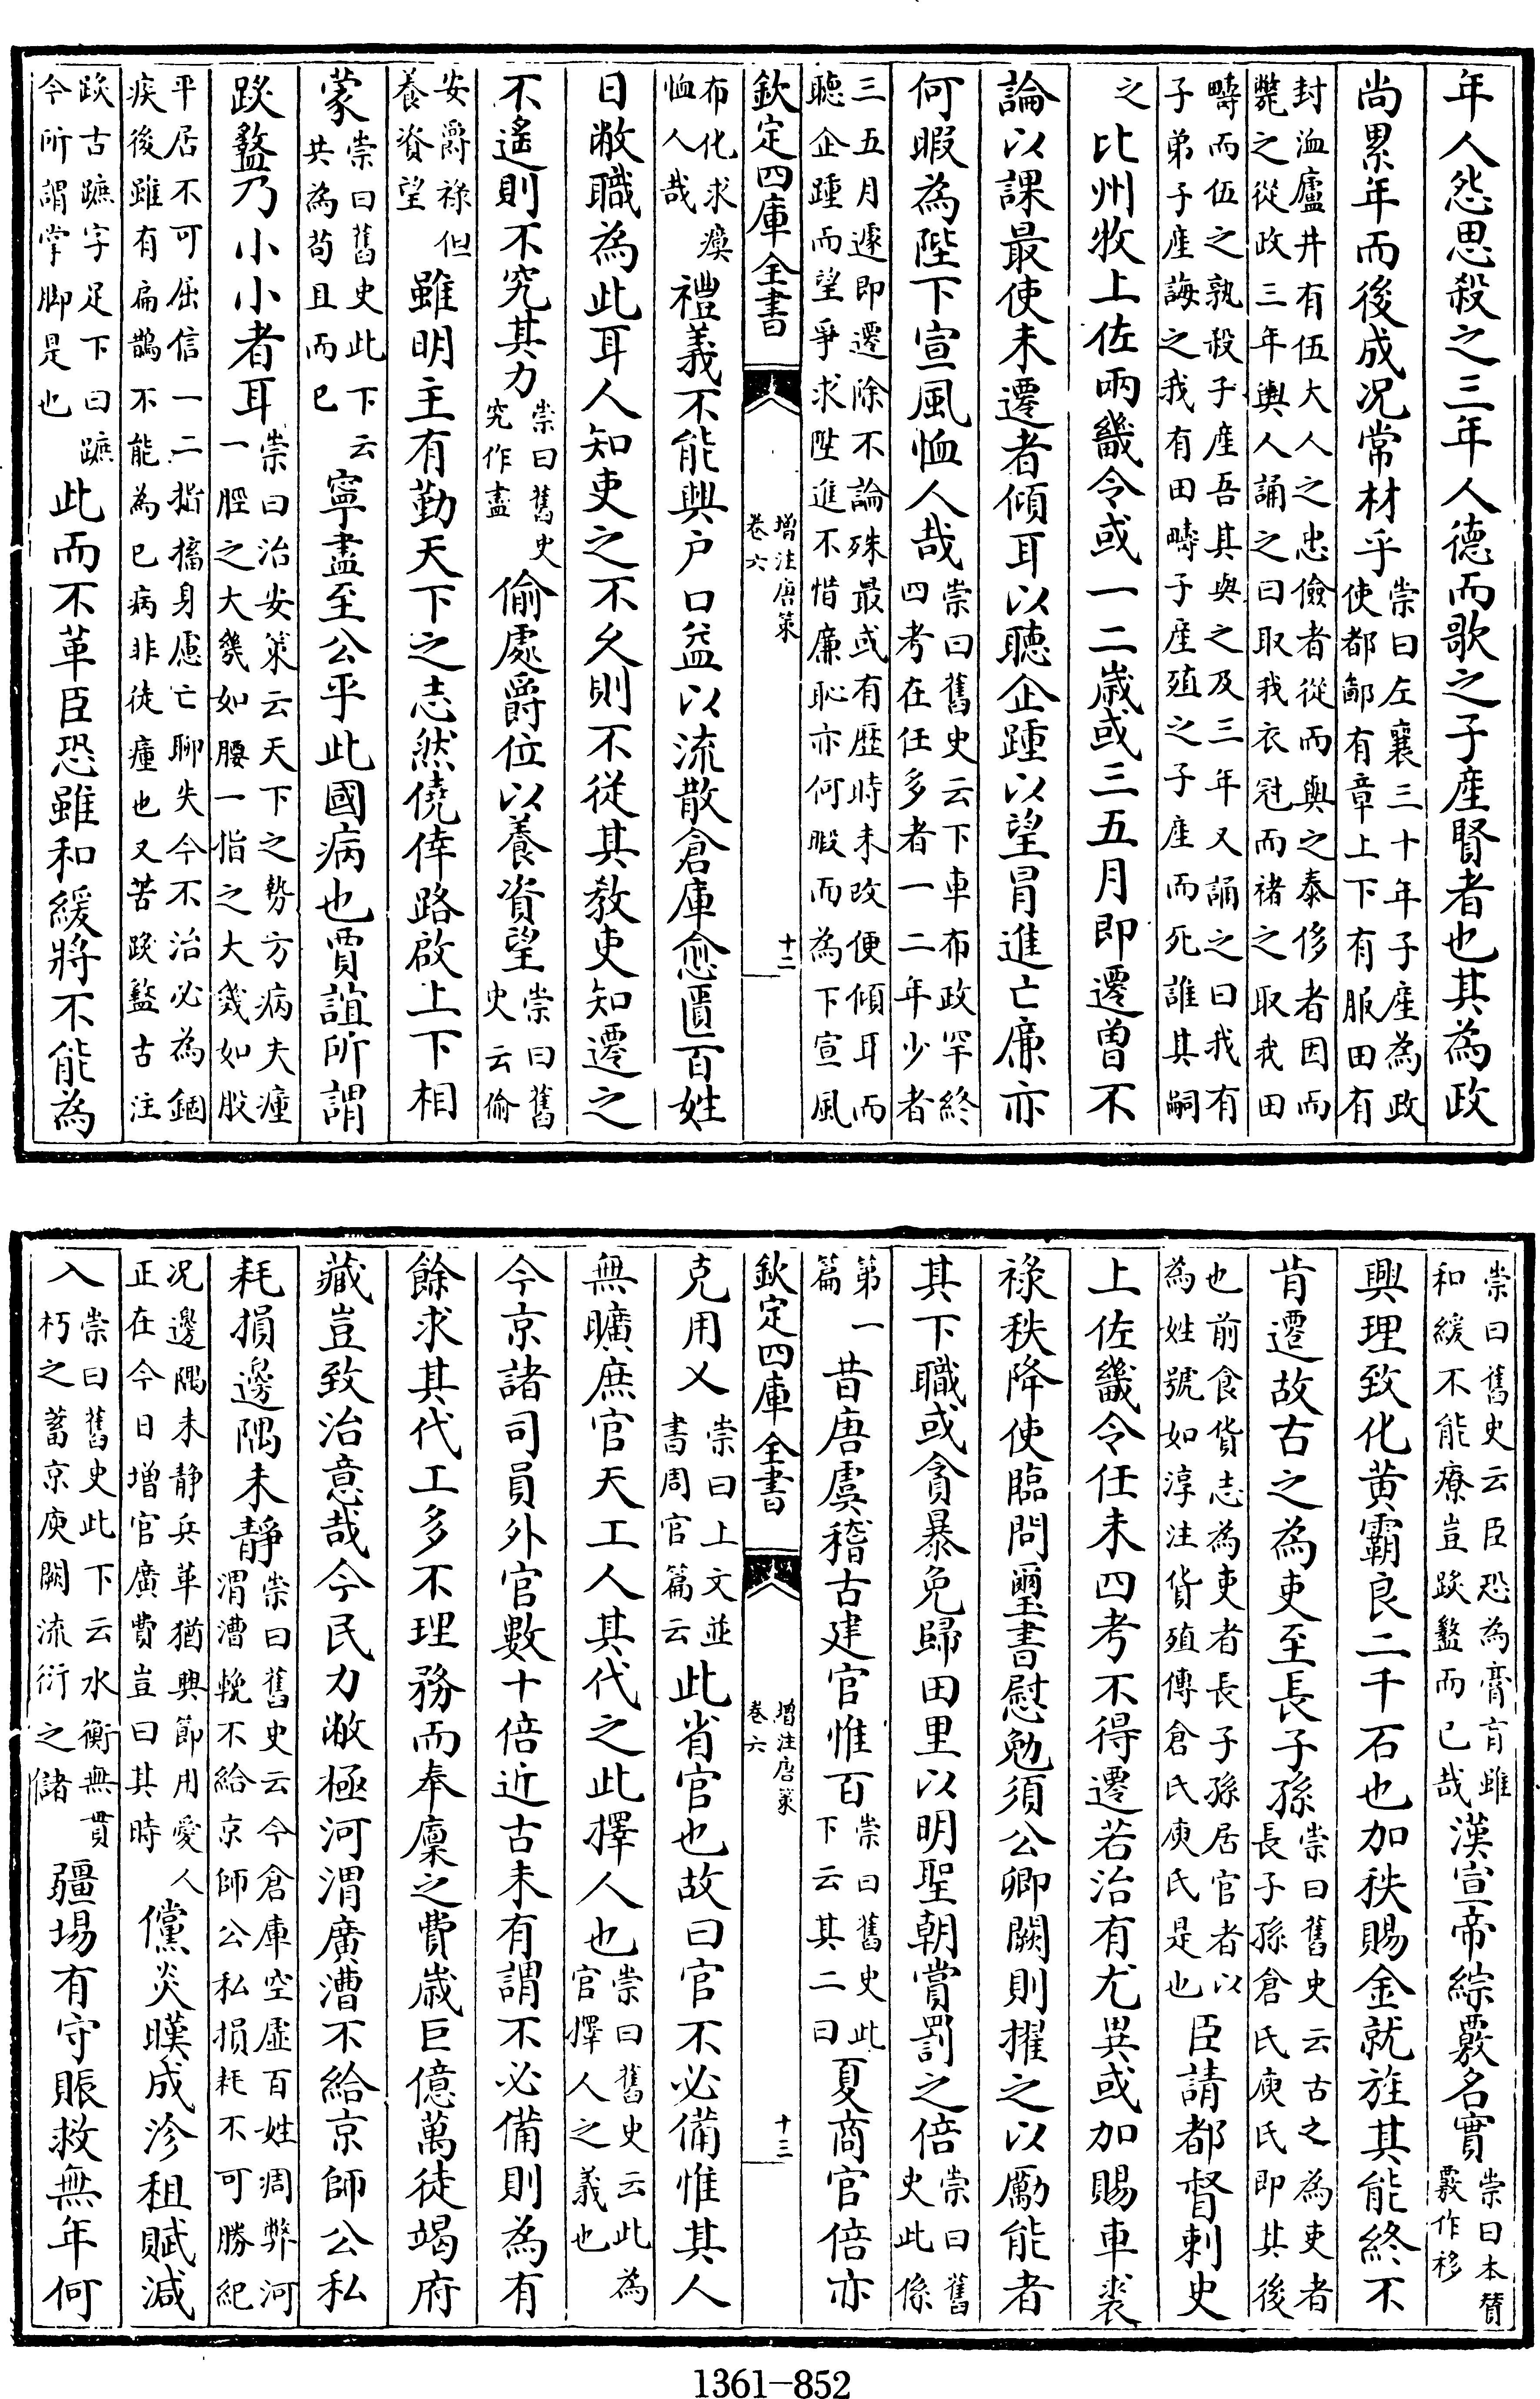 年人怨思殺之三年人德而歌之子產賢者也其為政
尚累年而後成况常材乎崇曰左襄三十年子產為政使都鄙有章上下有服田有
封洫廬井有伍大人之忠儉者從而與之泰侈者因而斃之從政三年輿人誦之曰取我衣冠而褚之取我田
疇而伍之孰殺子產吾其與之及三年又誦之曰我有子弟子產誨之我有田疇子產殖之子產而死誰其嗣
之比州牧上佐兩畿令或一二歲或三五月即遷曾不
論以課最使未遷者傾耳以聽企踵以望冒進亡廉亦
何暇為陛下宣風恤人哉崇曰舊史云下車布政罕終四考在任多者一二年少者
三五月遽即遷除不論殊最或有歷時未改便傾耳而聽企踵而望爭求陞進不惜廉恥亦何暇而為下宣風
欽定四庫全書 增注唐策 卷六 十二
布化求瘼恤人哉禮義不能興户口益以流散倉庫愈匱百姓
日敝職為此耳人知吏之不久則不從其教吏知遷之
不遙則不究其力崇曰舊史究作盡偷處爵位以養資望崇曰舊史云偷
安爵祿但養資望雖明主有勤天下之志然僥倖路啟上下相
蒙崇曰舊史此下云共為苟且而已寧盡至公乎此國病也賈誼所謂
跋盭乃小小者耳崇曰治安策云天下之勢方病夫瘇一脛之大幾如腰一指之大幾如股
平居不可屈信一二指搐身慮亡聊失今不治必為錮疾後雖有扁鵲不能為已病非徒瘇也又苦跋盭古注
跋古蹠字足下曰蹠今所謂掌脚是也此而不革臣恐雖和緩將不能為
崇曰舊史云臣恐為膏肓雖和緩不能療豈跋盭而已哉漢宣帝綜覈名實崇曰本贊覈作移
興理致化黄霸良二千石也加秩賜金就旌其能終不
肯遷故古之為吏至長子孫崇曰舊史云古之為吏者長子孫倉氏庾氏即其後
也前食貨志為吏者長子孫居官者以為姓號如淳注貨殖傳倉氏庾氏是也臣請都督刺史
上佐畿令任未四考不得遷若治有尤異或加賜車裘
祿秩降使臨問璽書慰勉須公卿闕則擢之以勵能者
其下職或貪暴免歸田里以明聖朝賞罰之倍崇曰舊史此係
第一篇昔唐虞稽古建官惟百崇曰舊史此下云其二曰夏商官倍亦
欽定四庫全書 增注唐策 卷六 十三
克用乂崇曰上文並書周官篇云此省官也故曰官不必備惟其人
無曠庶官天工人其代之此擇人也崇曰舊史云此為官擇人之義也
今京諸司員外官數十倍近古未有謂不必備則為有
餘求其代工多不理務而奉廩之費歲巨億萬徒竭府
藏豈致治意哉今民力敝極河渭廣漕不給京師公私
耗損邊隅未靜崇曰舊史云今倉庫空虛百姓凋弊河渭漕輓不給京師公私損耗不可勝紀
况邊隅未靜兵革猶興節用愛人正在今日增官廣費豈曰其時儻炎暵成沴租賦減
入崇曰舊史此下云水衡無貫朽之蓄京庾闕流衍之儲疆埸有守賑救無年何
1361-852